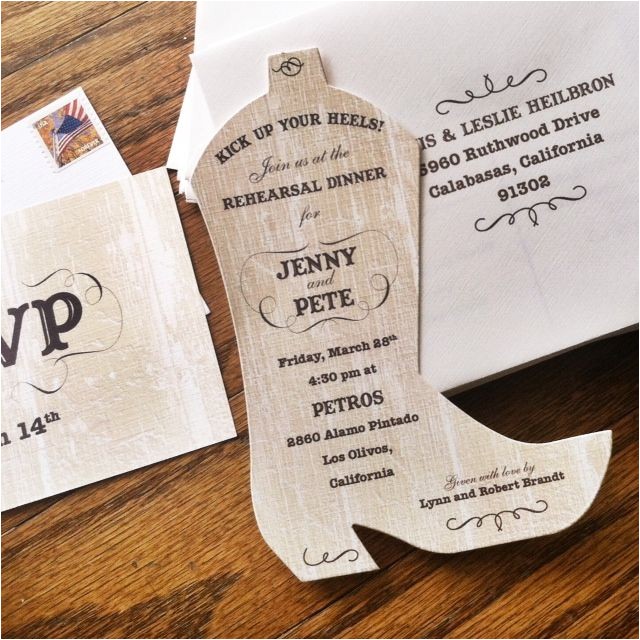 KICK UP YOUR HEELS!
Join us at the
REHEARSAL DINNER
for
JENNY
and
PETE
Friday, March 28th
4:30 pm at
PETROS
2860 Alamo Pintado
Los Olivos,
California
Given with love by
Lynn and Robert Brandt
IS & LESLIE HEILBRON
5960 Ruthwood Drive
Calabasas, California
91302
VP
14th
USA
FOREVER